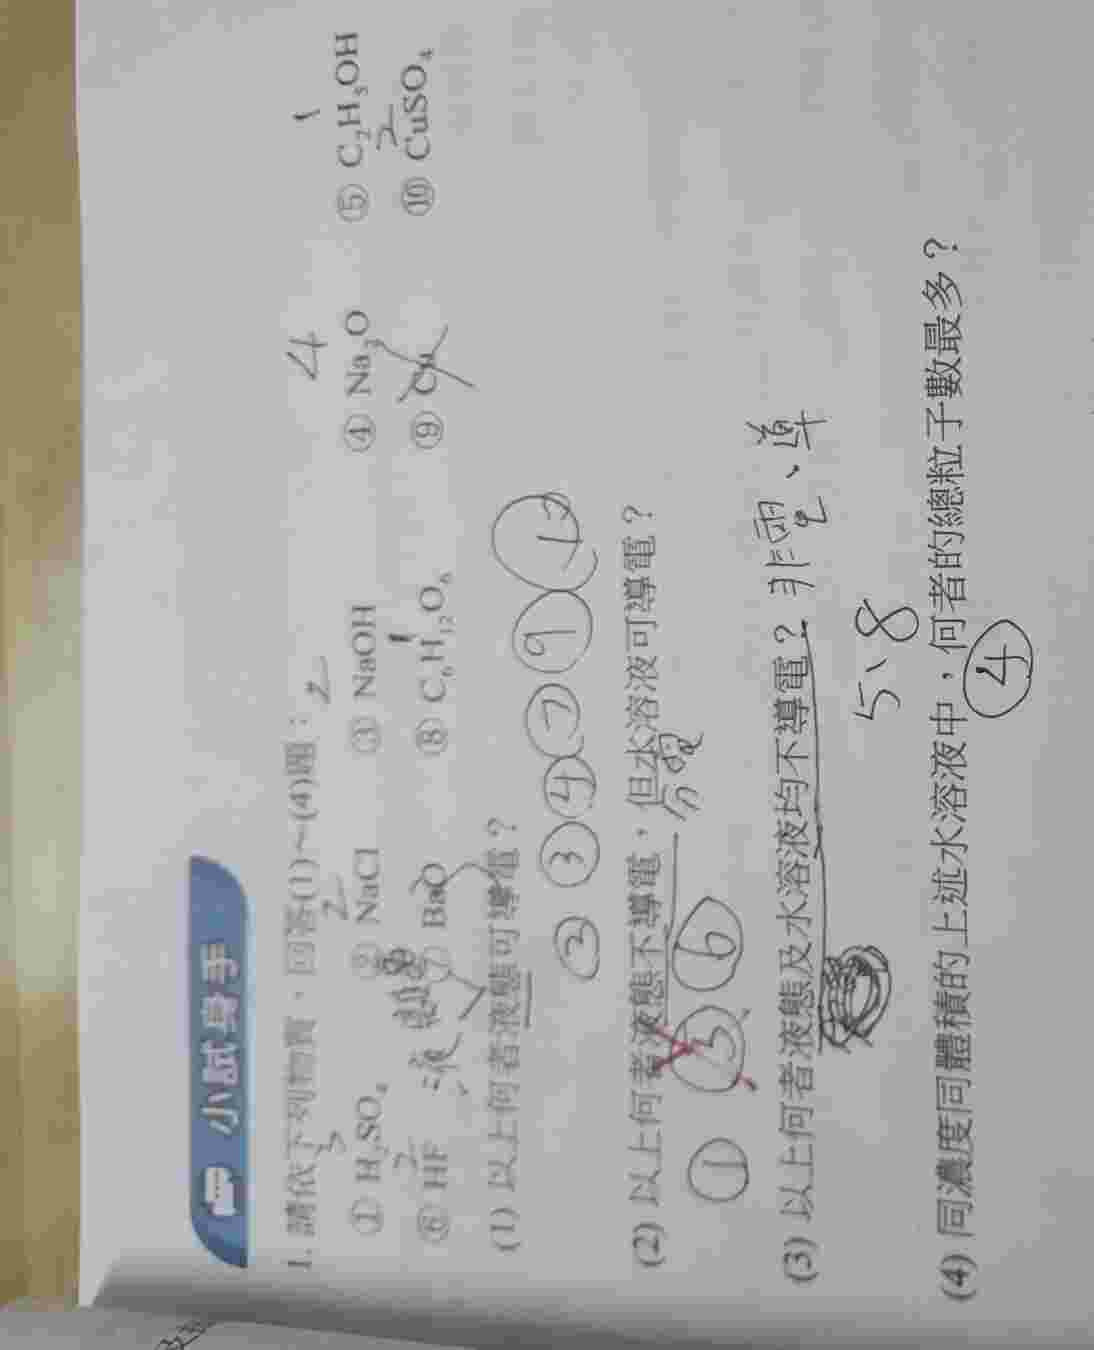 小試身手
1. 請依下列物質，回答(1)～(4)題：
3 2 2 4 1
① H₂SO₄ ② NaCl ③ NaOH ④ Na₂O ⑤ C₂H₅OH
2 1 2
⑥ HF ⑦ BaO ⑧ C₆H₁₂O₆ ⑨ Cu ⑩ CuSO₄
液態
(1) 以上何者液態可導電？
② ③ ④ ⑦ ⑨ ⑩
(2) 以上何者液態不導電，但水溶液可導電？
① ⑤ ⑥
(3) 以上何者液態及水溶液均不導電？非電、導
5、8
(4) 同濃度同體積的上述水溶液中，何者的總粒子數最多？
④